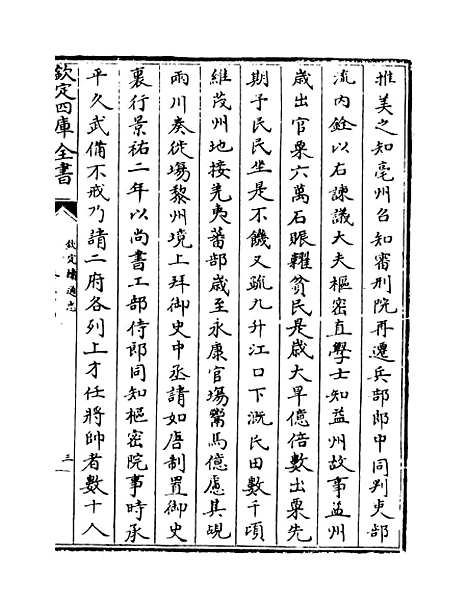 推美之知亳州召知審刑院再遷兵部郎中同判吏部
流內銓以右諫議大夫樞密直學士知益州故事益州
歲出官粟六萬石賑糶貧民是歲大旱億倍數出粟先
期予民民坐是不饑又疏九升江口下溉民田數千頃
維茂州地接羌夷蕃部歲至永康官場鬻馬億慮其覘
兩川奏徙場黎州境上拜御史中丞請如唐制置御史
裏行景祐二年以尚書工部侍郎同知樞密院事時承
平久武備不戒乃請二府各列上才任將帥者數十人
欽定四庫全書
欽定續通志
三